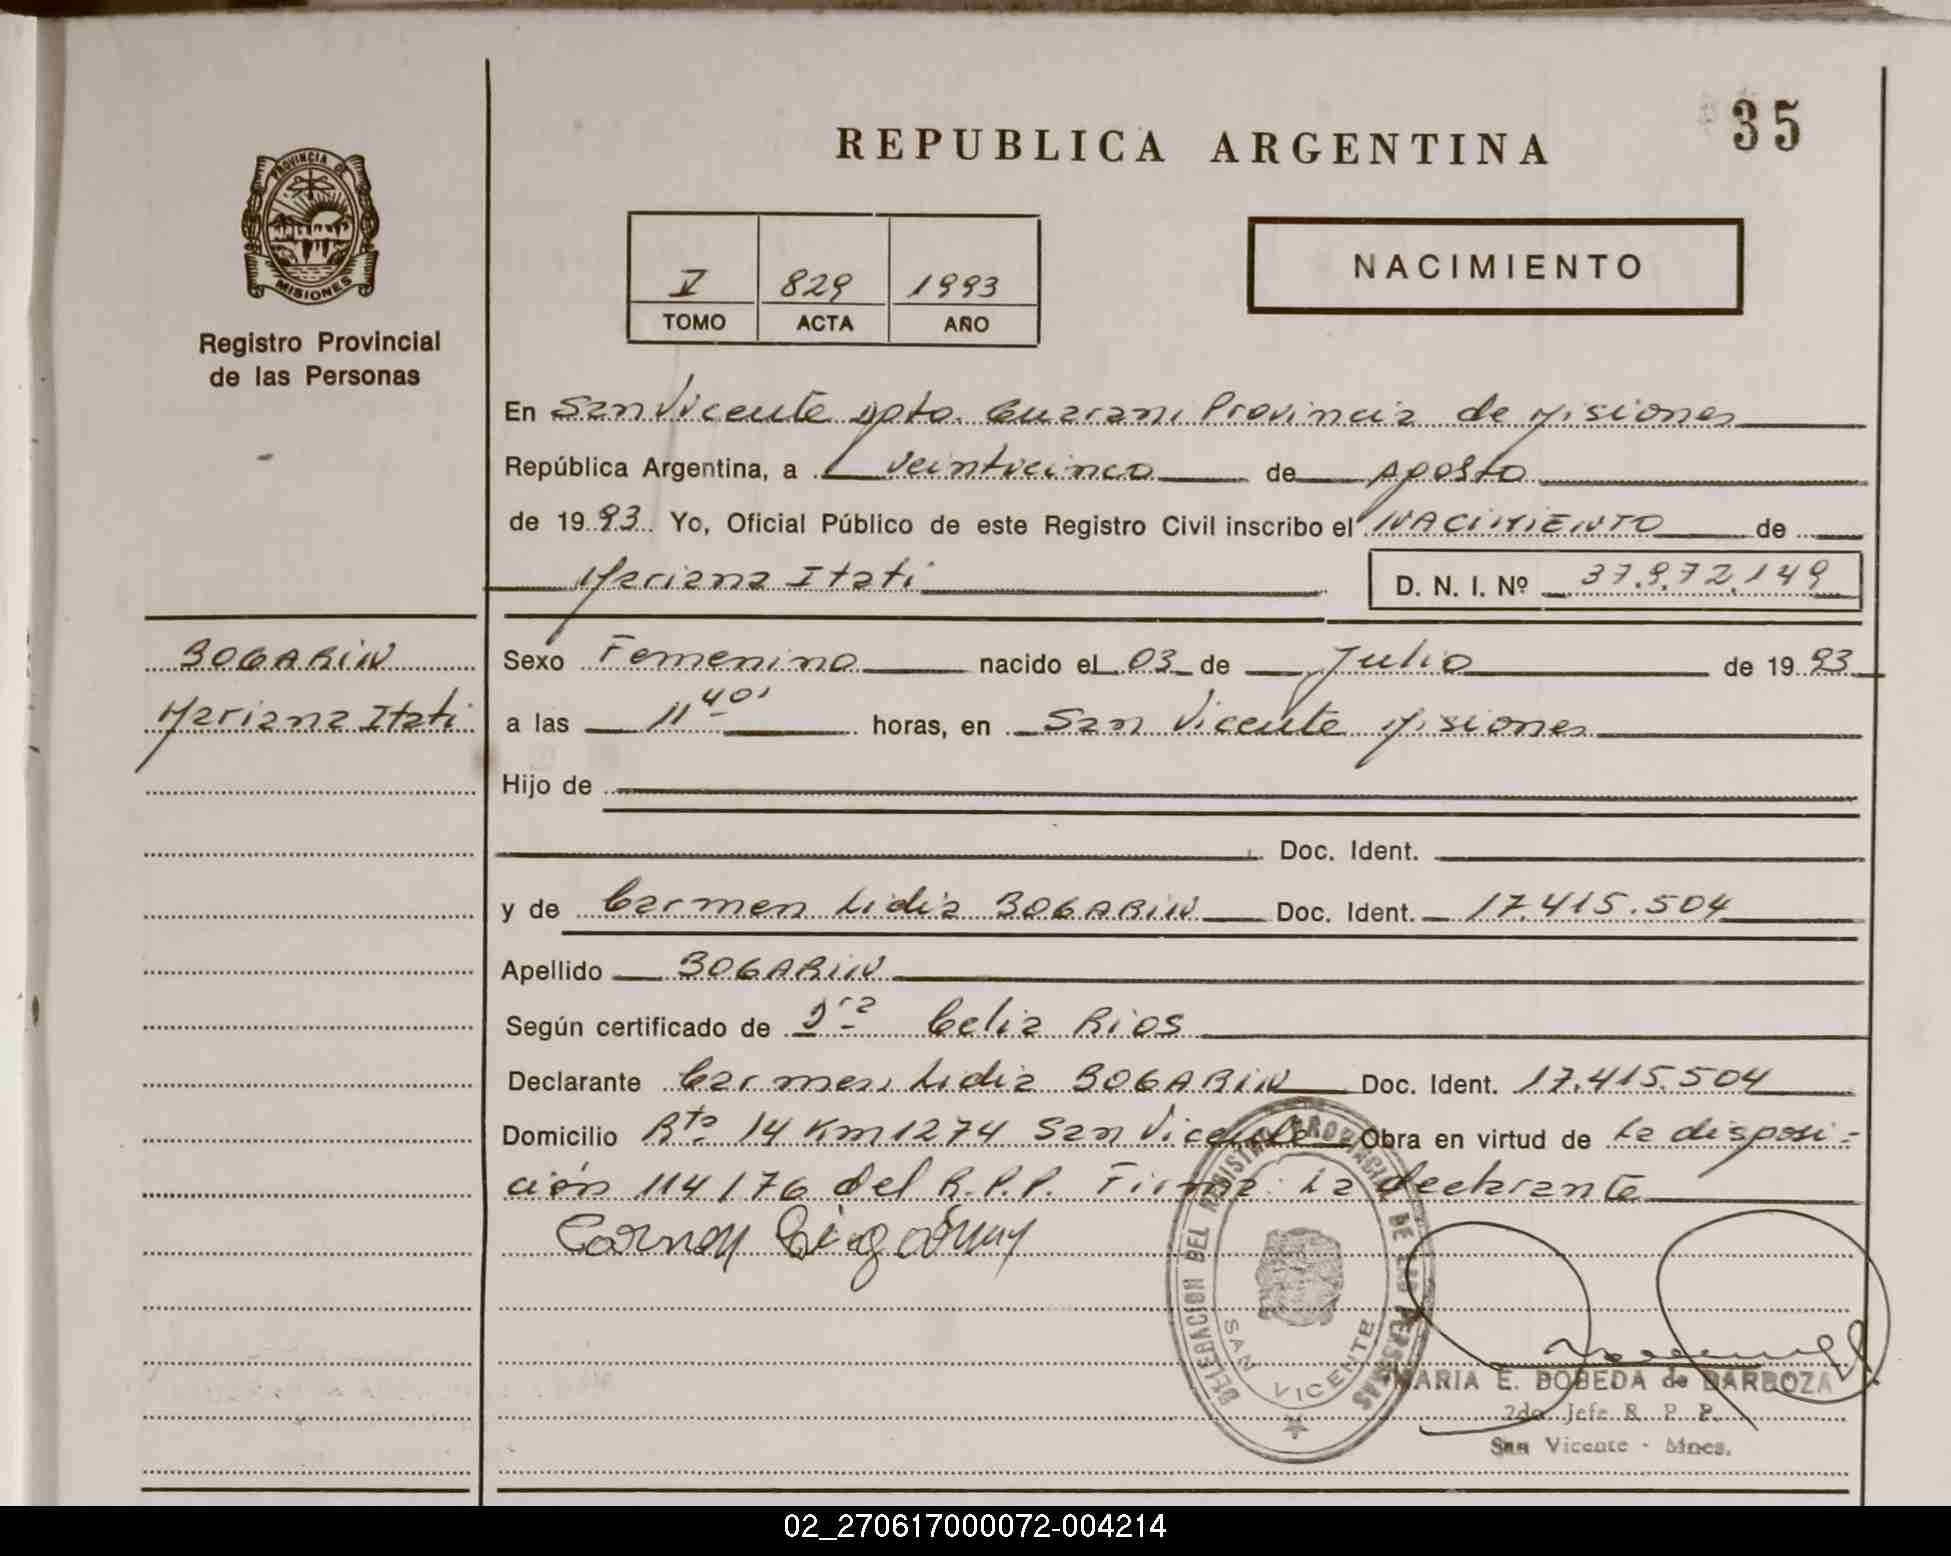 35
REPUBLICA ARGENTINA
PROVINCIA DE
MISIONES
Registro Provincial
de las Personas
V 829 1993
TOMO ACTA AÑO
NACIMIENTO
En San Vicente Dpto. Guarani Provincia de Misiones
República Argentina, a veinticinco de Agosto
de 1993 Yo, Oficial Público de este Registro Civil inscribo el NACIMIENTO de
Mariana Itati D. N. I. Nº 37.972.149
BOGARIN
Mariana Itati
Sexo Femenino nacido el 03 de Julio de 1993
a las 11 40' horas, en San Vicente Misiones
Hijo de
Doc. Ident.
y de Carmen Lidia BOGARIN Doc. Ident. 17.415.504
Apellido BOGARIN
Según certificado de Dra Celia Rios
Declarante Carmen Lidia BOGARIN Doc. Ident. 17.415.504
Domicilio Rta 14 Km 1274 San Vicente Obra en virtud de La disposi-
ción 114/76 del R.P.P. Firma: La declarante
DELEGACION DEL REGISTRO PROVINCIAL DE LAS PERSONAS
SAN VICENTE
MARIA E. BOBEDA de BARBOZA
2do Jefe R. P. P.
San Vicente - Mnes.
02_270617000072-004214